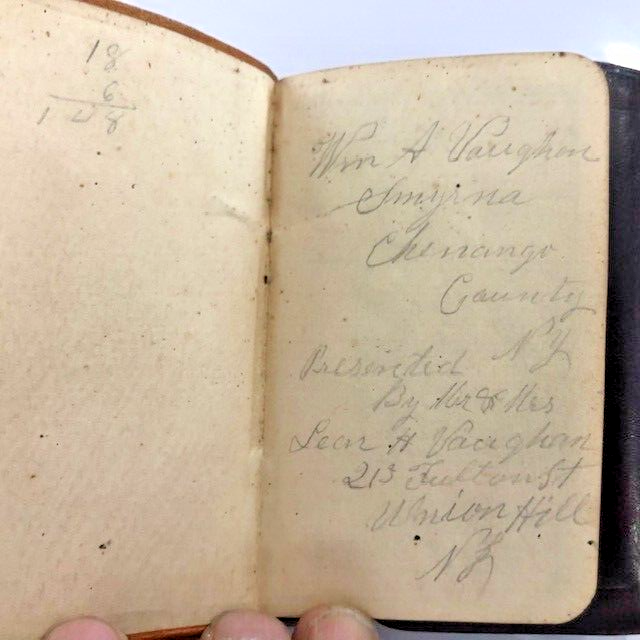 18
6
148
Wm A Vaughan
Smyrna
Chenango
County
N Y
Presented
By Mr & Mrs
Leon H Vaughan
213 Fulton St
Union Hill
NY